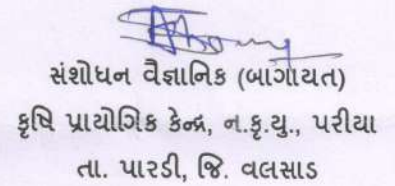 સંશોધન વૈજ્ઞાનિક (બાગાયત)
કૃષિ પ્રાયોગિક કેન્દ્ર, ન.કૃ.યુ., પરીયા
તા. પારડી, જિ. વલસાડ